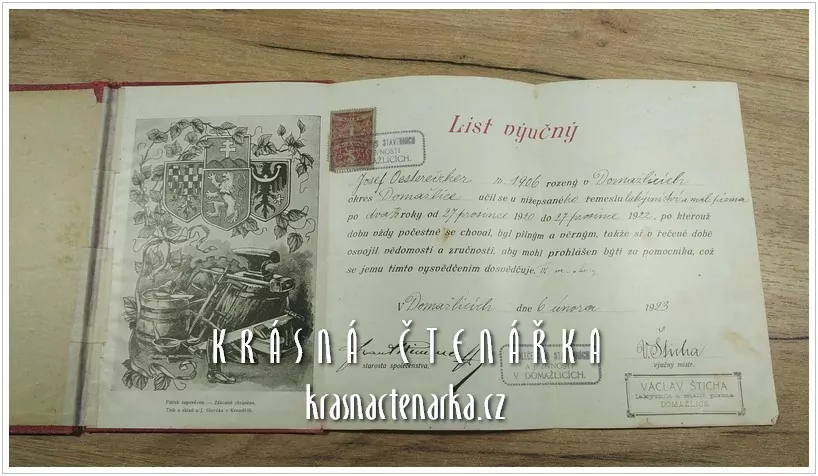 List výučný
STAVEBNÍCH
A ŽIVNOSTÍ
V DOMAŽLICÍCH.
Josef Oestereicher r. 1906 rozený v Domažlicích
okres Domažlice učil se u nížepsaného řemeslu lakýrnictví a mal. písma
po dva roky od 27 prosince 1920 do 27 prosince 1922, po kterouž
dobu vždy počestně se choval, byl pilným a věrným, takže si v řečené době
osvojil vědomosti a zručnosti, aby mohl prohlášen býti za pomocníka, což
se jemu tímto vysvědčením dosvědčuje.
V Domažlicích dne 6 února 1923
KRÁSNÁ ČTENÁŘKA
starosta společenstva.
STAVEBNÍCH
A ŽIVNOSTÍ
V DOMAŽLICÍCH.
V. Šticha
výučný mistr.
VÁCLAV ŠTICHA
lakýrník a malíř písma
DOMAŽLICE
krasnactenarka.cz
Pařník zapověděn. — Zákonně chráněno.
Tisk a sklad u J. Slováka v Kroměříži.